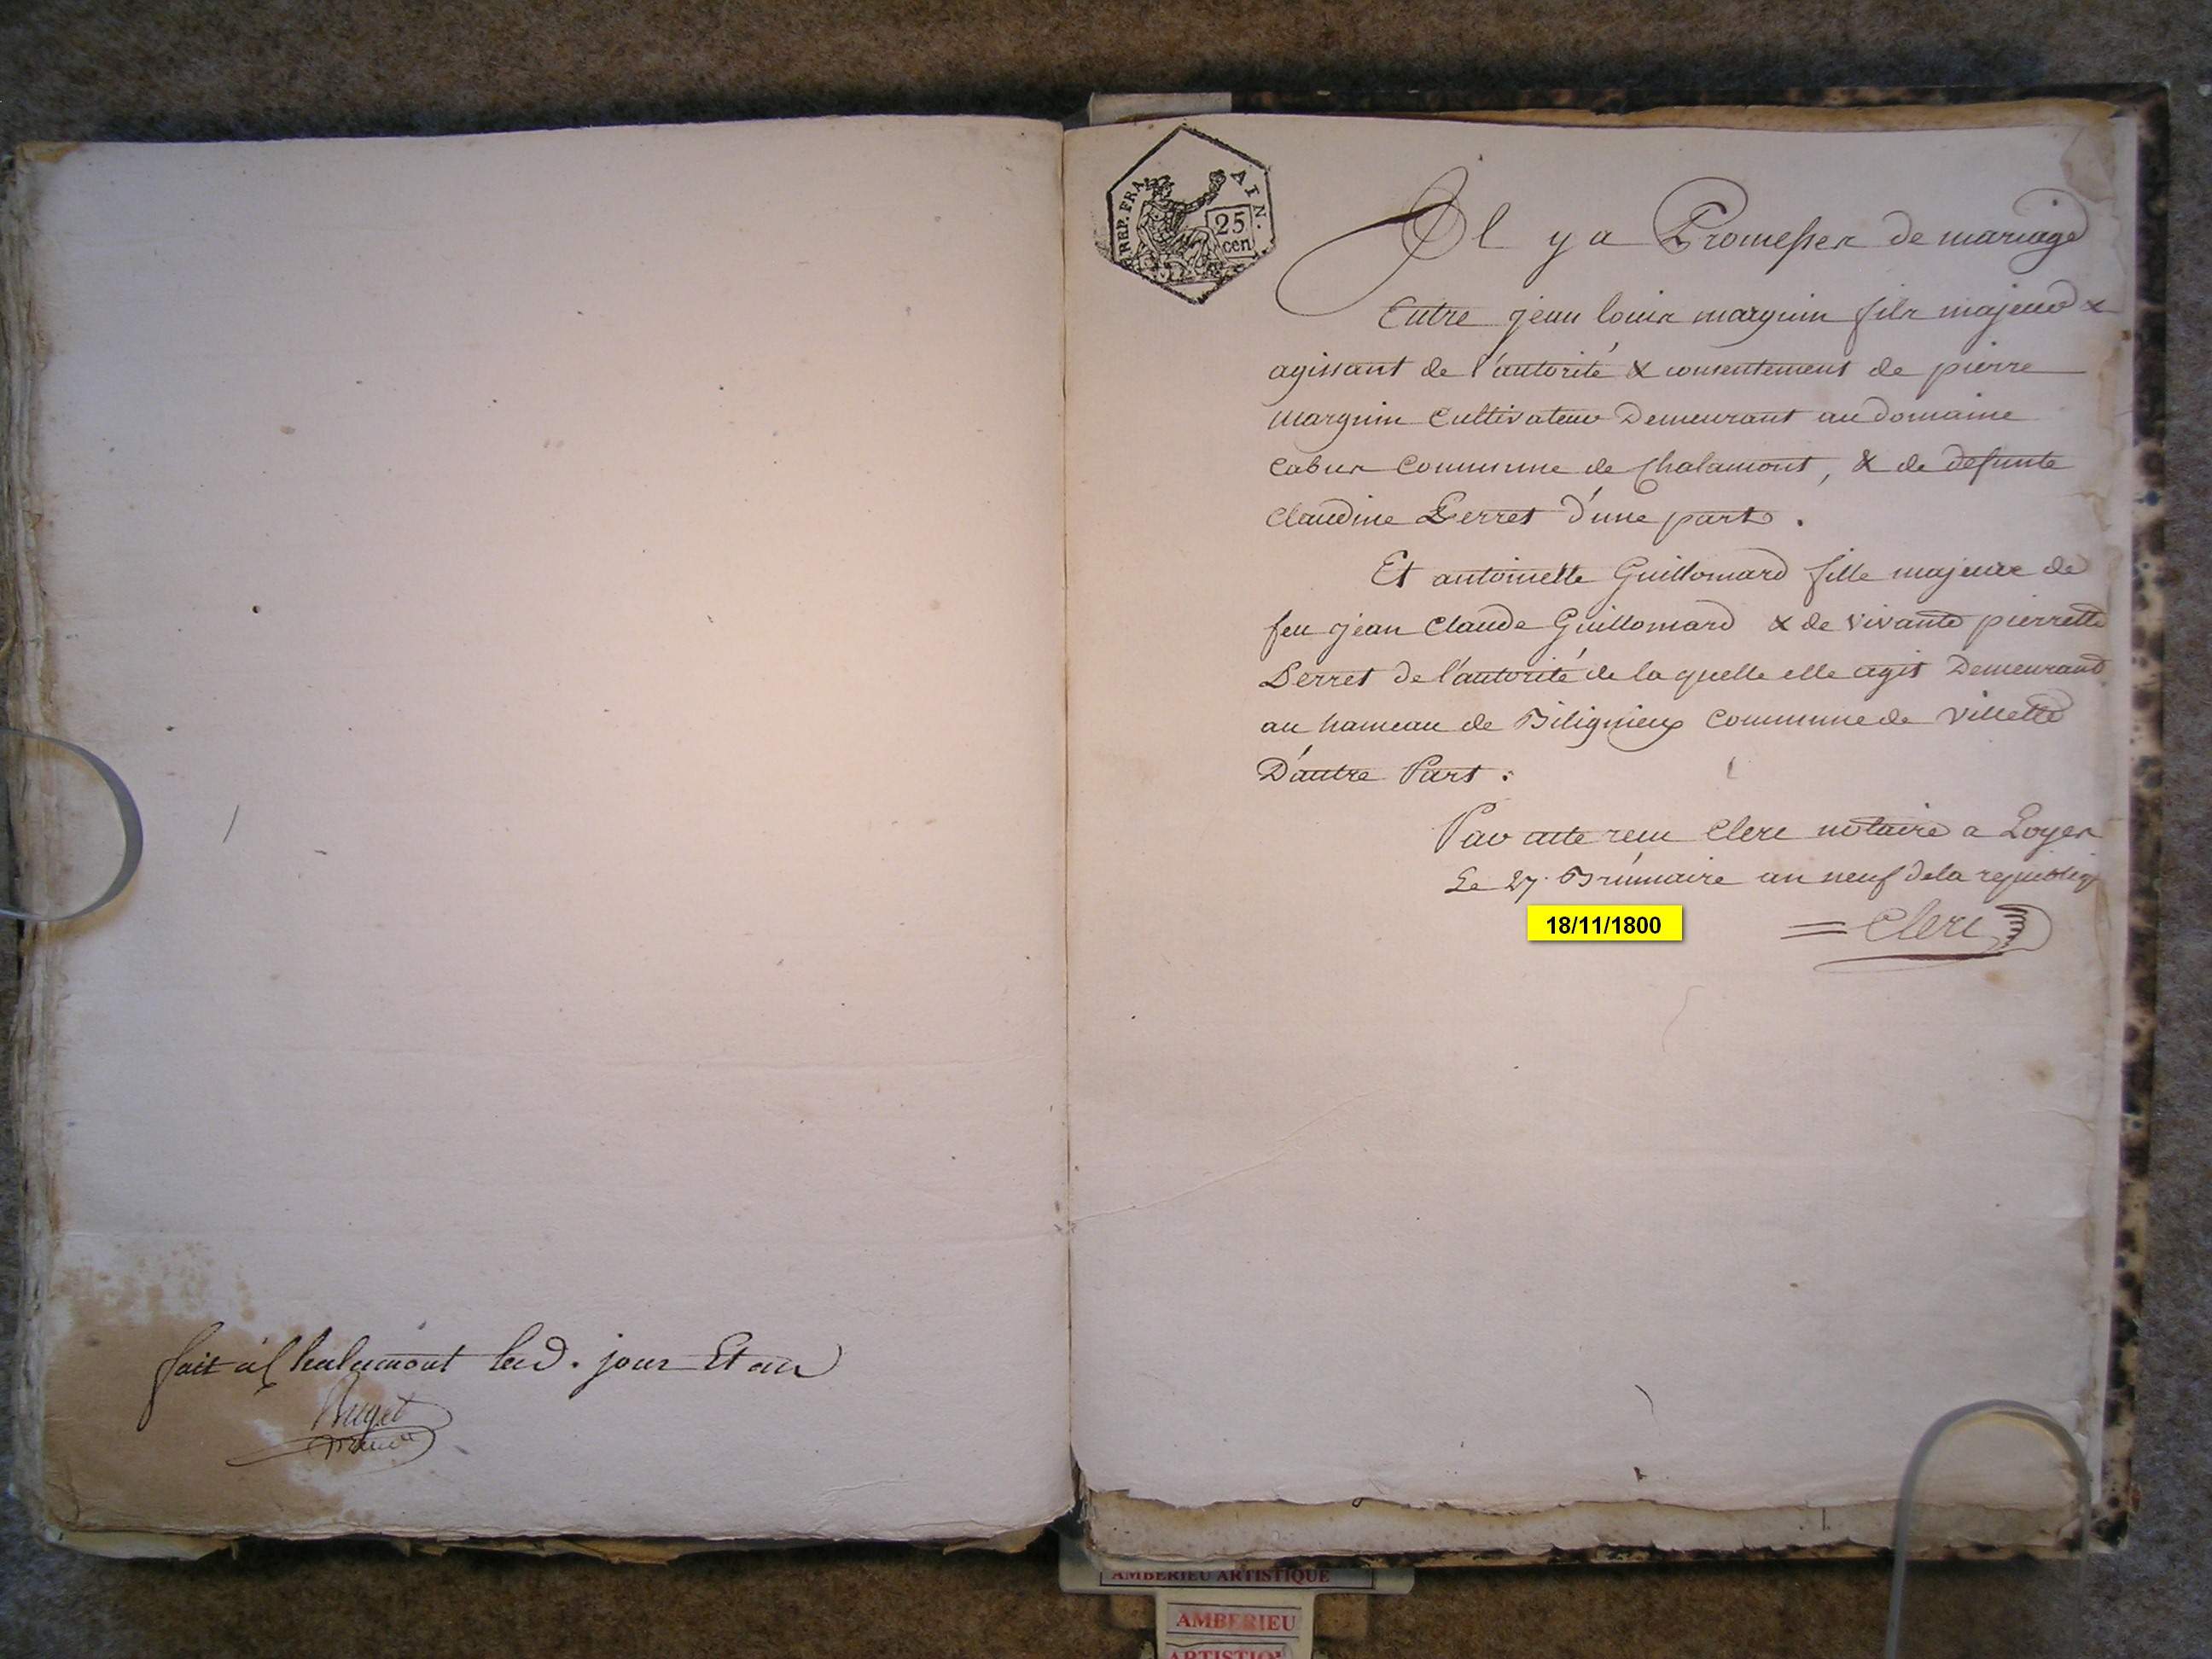 fait à Chalamont led. jour Et an
Buget
REP. FRA.
AIN.
25
cen
Il y a Promesses de mariage
Entre jean louis marguin fils majeur &
agissant de l'autorité & consentement de pierre
Marguin Cultivateur Demeurant au domaine
Cabus Commune de Chalamont, & de defunte
Claudine Perret d'une part.
Et antoinette Guillomard fille majeure de
feu jean Claude Guillomard & de vivante pierrette
Perret de l'autorité de la quelle elle agit Demeurant
au hameau de Bilignieux Commune de Villette
D'autre Part.
Par acte recu Clerc notaire a Loyes
Le 27. Brumaire an neuf de la republiq
18/11/1800
Clerc
AMBERIEU ARTISTIQUE
AMBERIEU
ARTISTIQ